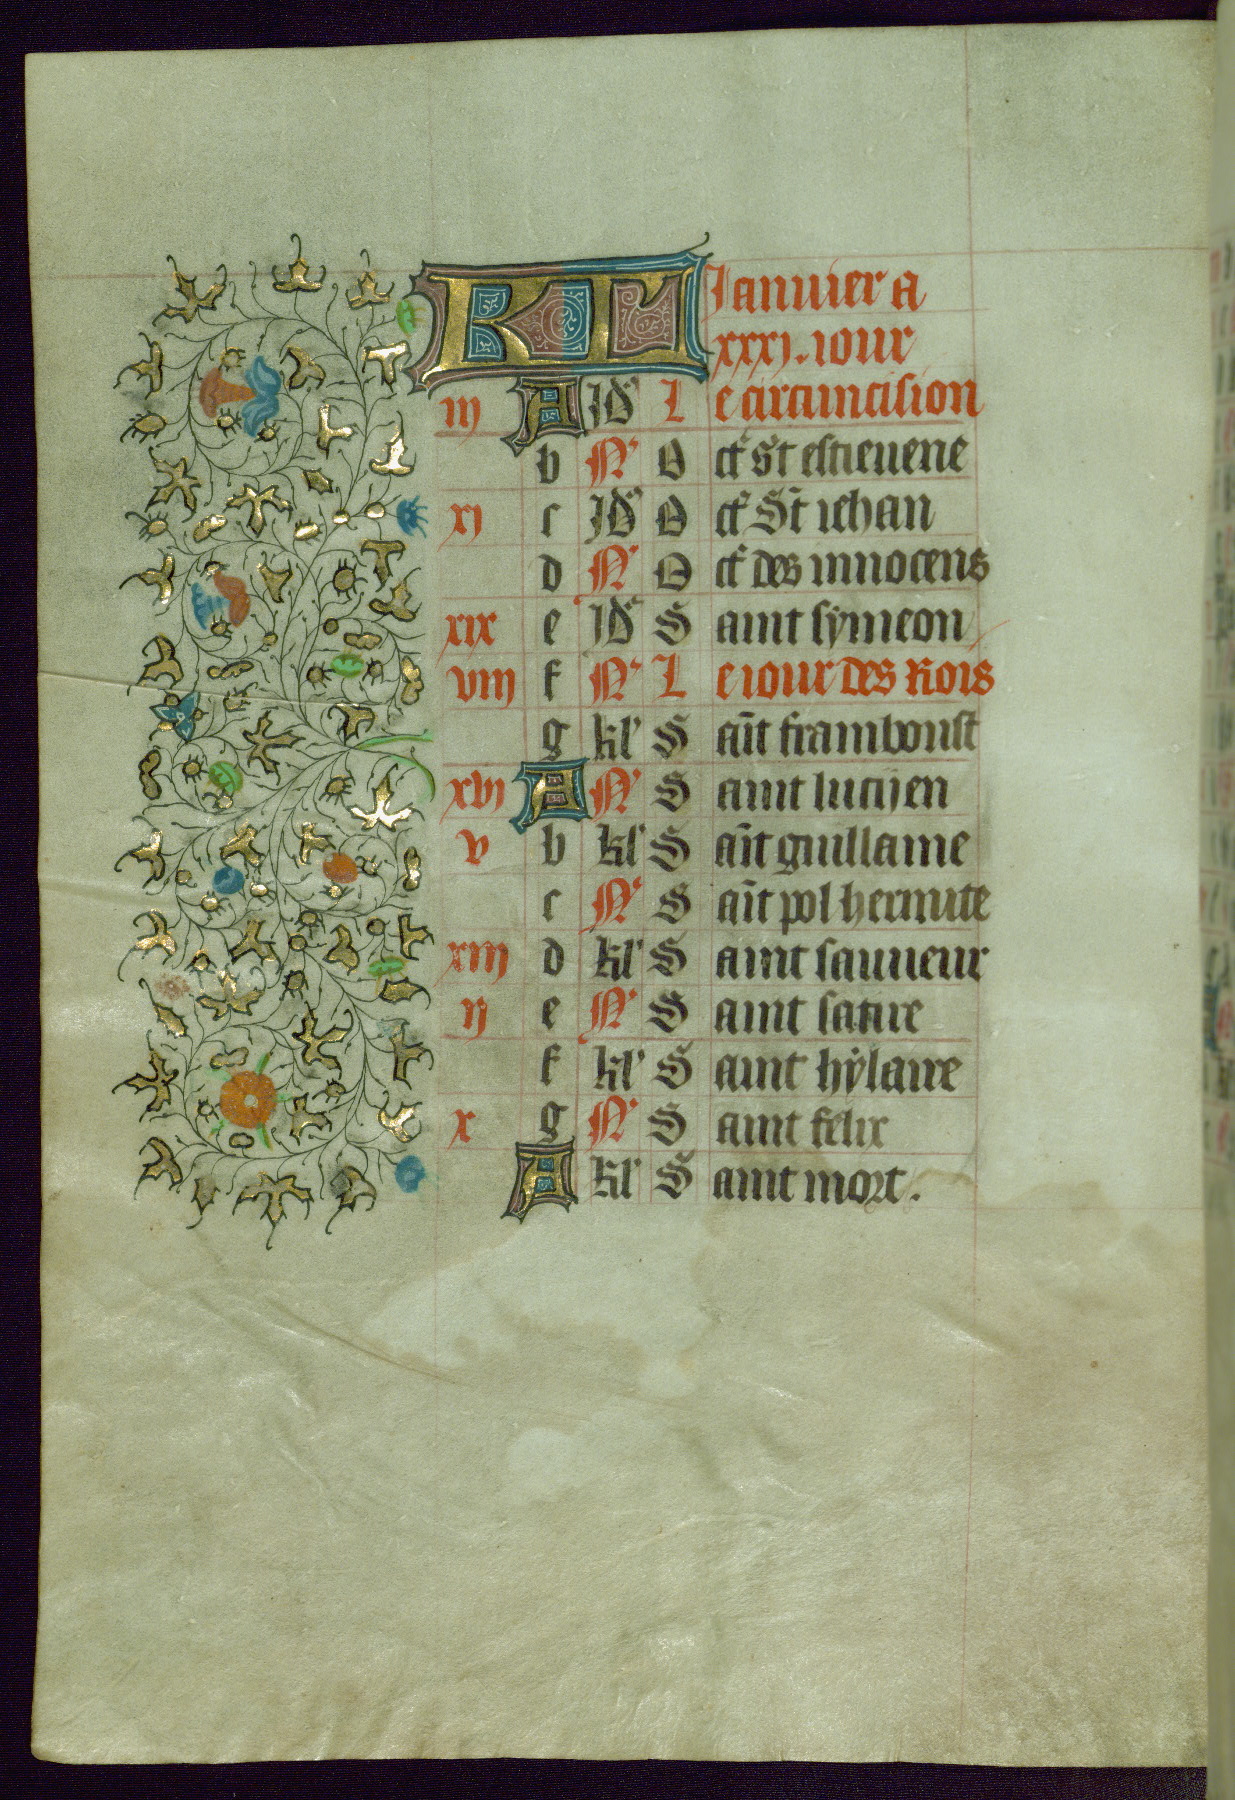 KL Januier a
xxxj. iour
iij A Jd' L e circuncision
b N' O ct' st estieuene
xj c Jd' O ct' St iehan
d N' O ct' des innocens
xix e Jd' S aint symeon
viij f N' L e iour des Rois
g kl' S aint framboust
xvj A N' S aint lucijen
v b kl' S aint guillame
c N' S aint pol hermite
xiij d kl' S aint sauueur
ij e N' S aint satire
f kl' S aint hylaire
x g N' S aint felix
A kl' S aint mort.